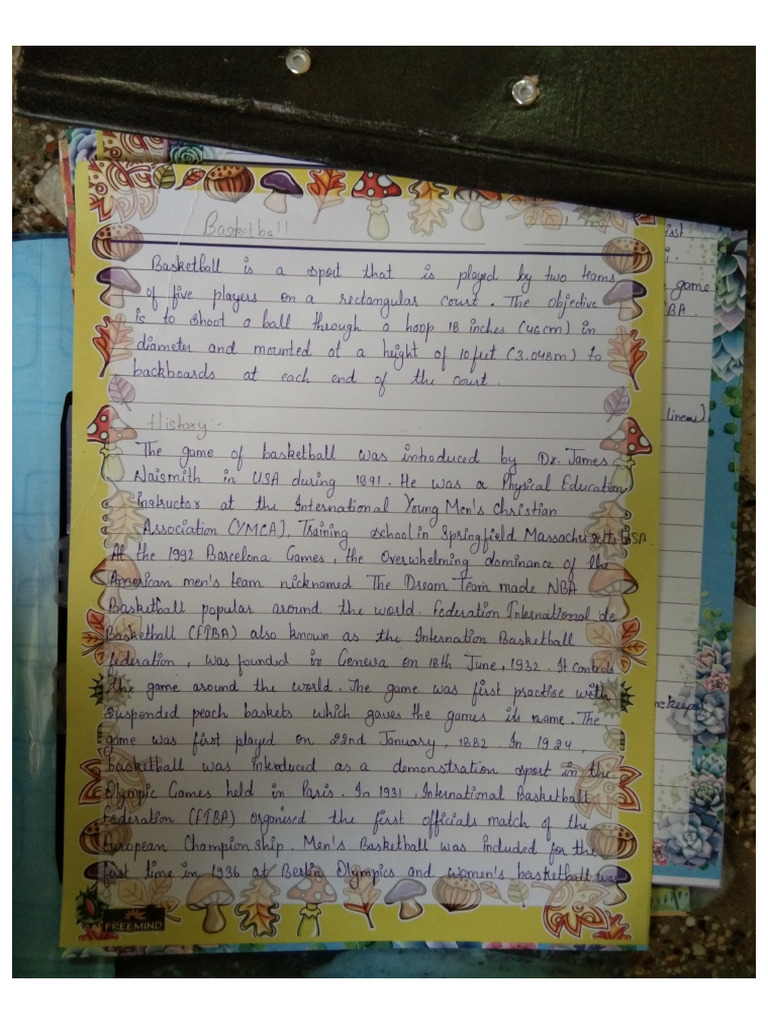 Basketball
Basketball is a sport that is played by two teams
of five players on a rectangular court. The objective
is to shoot a ball through a hoop 18 inches (46cm) in
diameter and mounted at a height of 10 feet (3.048m) to
backboards at each end of the court.
History:-
The game of basketball was introduced by Dr. James
Naismith in USA during 1891. He was a Physical Education
instructor at the International Young Men's Christian
Association (YMCA), Training school in Springfield Massachusetts, USA.
At the 1992 Barcelona Games, the overwhelming dominance of the
American men's team nicknamed The Dream Team made NBA
Basketball popular around the world. Federation International de
Basketball (FIBA) also known as the Internation Basketball
federation, was founded in Geneva on 18th June, 1932. It controls
the game around the world. The game was first practise with
suspended peach baskets which gaves the games its name. The
game was first played on 22nd January, 1882. In 1924,
basketball was introduced as a demonstration sport in the
Olympic Games held in Paris. In 1931, International Basketball
Federation (FIBA) organised the first officials match of the
European Championship. Men's Basketball was included for the
first time in 1936 at Berlin Olympics and women's basketball was
FREEMIND
game
BA.
linemen)